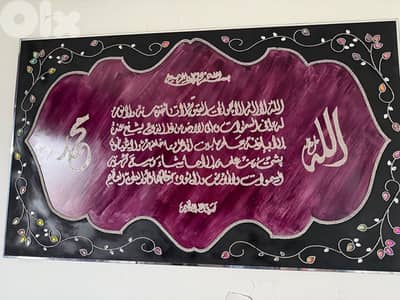 OLX
بسم الله الرحمن الرحيم
الله لا إله إلا هو الحي القيوم لا تأخذه سنة ولا نوم
له ما في السموات وما في الأرض من ذا الذي يشفع عنده
إلا بإذنه يعلم ما بين أيديهم وما خلفهم ولا يحيطون
بشيء من علمه إلا بما شاء وسع كرسيه
السموات والأرض ولا يؤوده حفظهما وهو العلي العظيم
الله
محمد